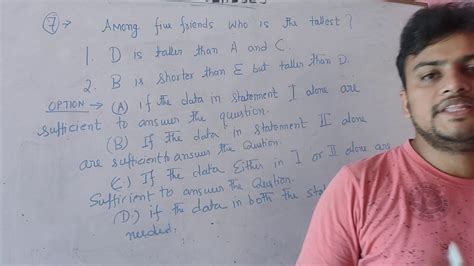 7 → Among five friends who is the tallest?
1. D is taller than A and C.
2. B is shorter than E but taller than D.
OPTION → (A) if the data in statement I alone are
sufficient to answer the question.
(B) If the data in statement II alone
are sufficient to answer the Question.
(C) If the data Either in I or II alone are
Sufficient to answer the Question.
(D) if the data in both the
needed.